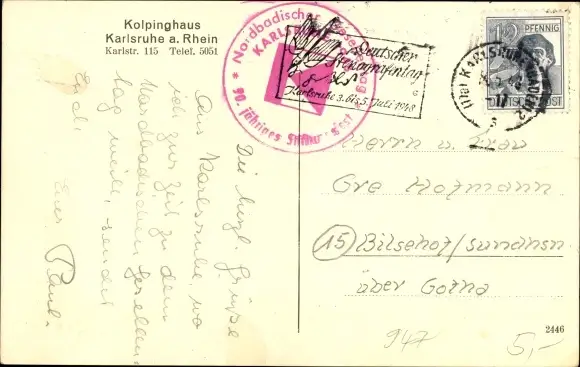 Kolpinghaus
Karlsruhe a. Rhein
Karlstr. 115 Telef. 5051
Nordbadischer Gesellentag
KARLSRUHE
90. jähriges Stiftungsfest
Deutscher
Stenografentag
Karlsruhe 3. bis 5. Juli 1948
(17a) KARLSRUHE (BADEN) 2
12 PFENNIG
DEUTSCHE POST
Die herzl. Grüße
aus Karlsruhe, wo
ich zur Zeit zu dem
Nordbadischen Gesellen
tag weile, sendet
Euch
Euer Paul.
Herrn u. Frau
Gre Hofmann
(15) Bilsehof/Sundhsn
über Gotha
947
5,-
2446